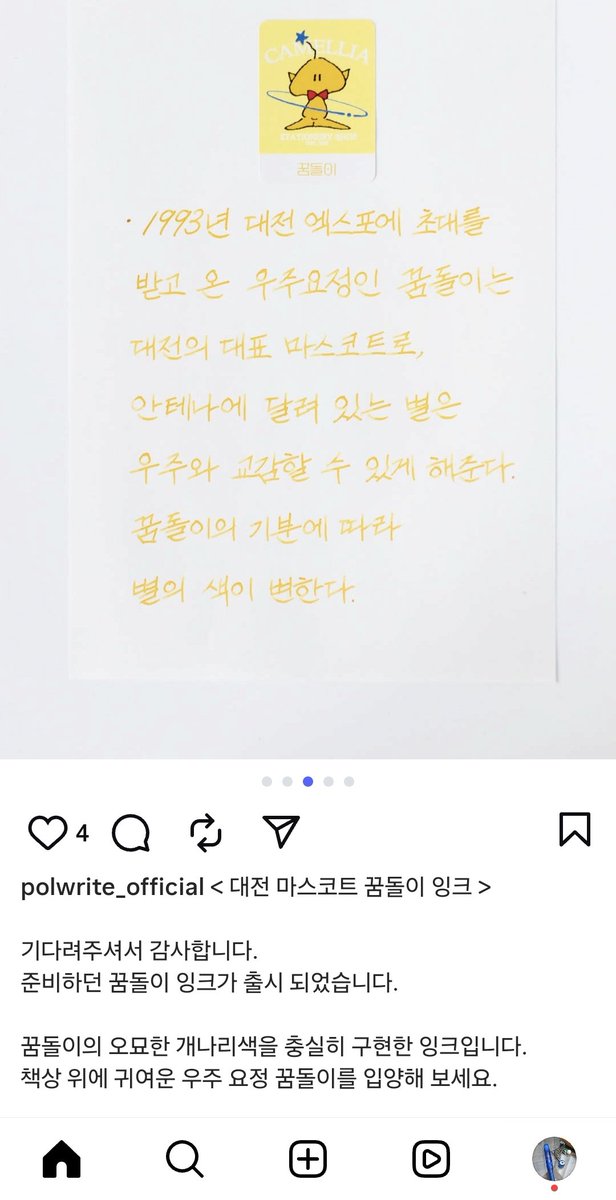 CAMELLIA
꿈돌이
· 1993년 대전 엑스포에 초대를
받고 온 우주요정인 꿈돌이는
대전의 대표 마스코트로,
안테나에 달려 있는 별은
우주와 교감할 수 있게 해준다.
꿈돌이의 기분에 따라
별의 색이 변한다.
4
polwrite_official < 대전 마스코트 꿈돌이 잉크 >
기다려주셔서 감사합니다.
준비하던 꿈돌이 잉크가 출시 되었습니다.
꿈돌이의 오묘한 개나리색을 충실히 구현한 잉크입니다.
책상 위에 귀여운 우주 요정 꿈돌이를 입양해 보세요.